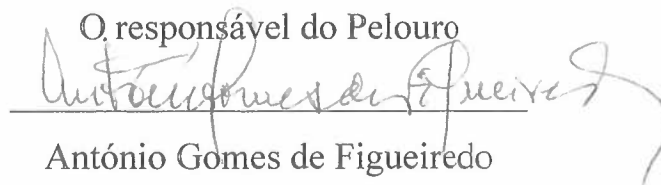 O responsável do Pelouro
António Gomes de Figueiredo
António Gomes de Figueiredo